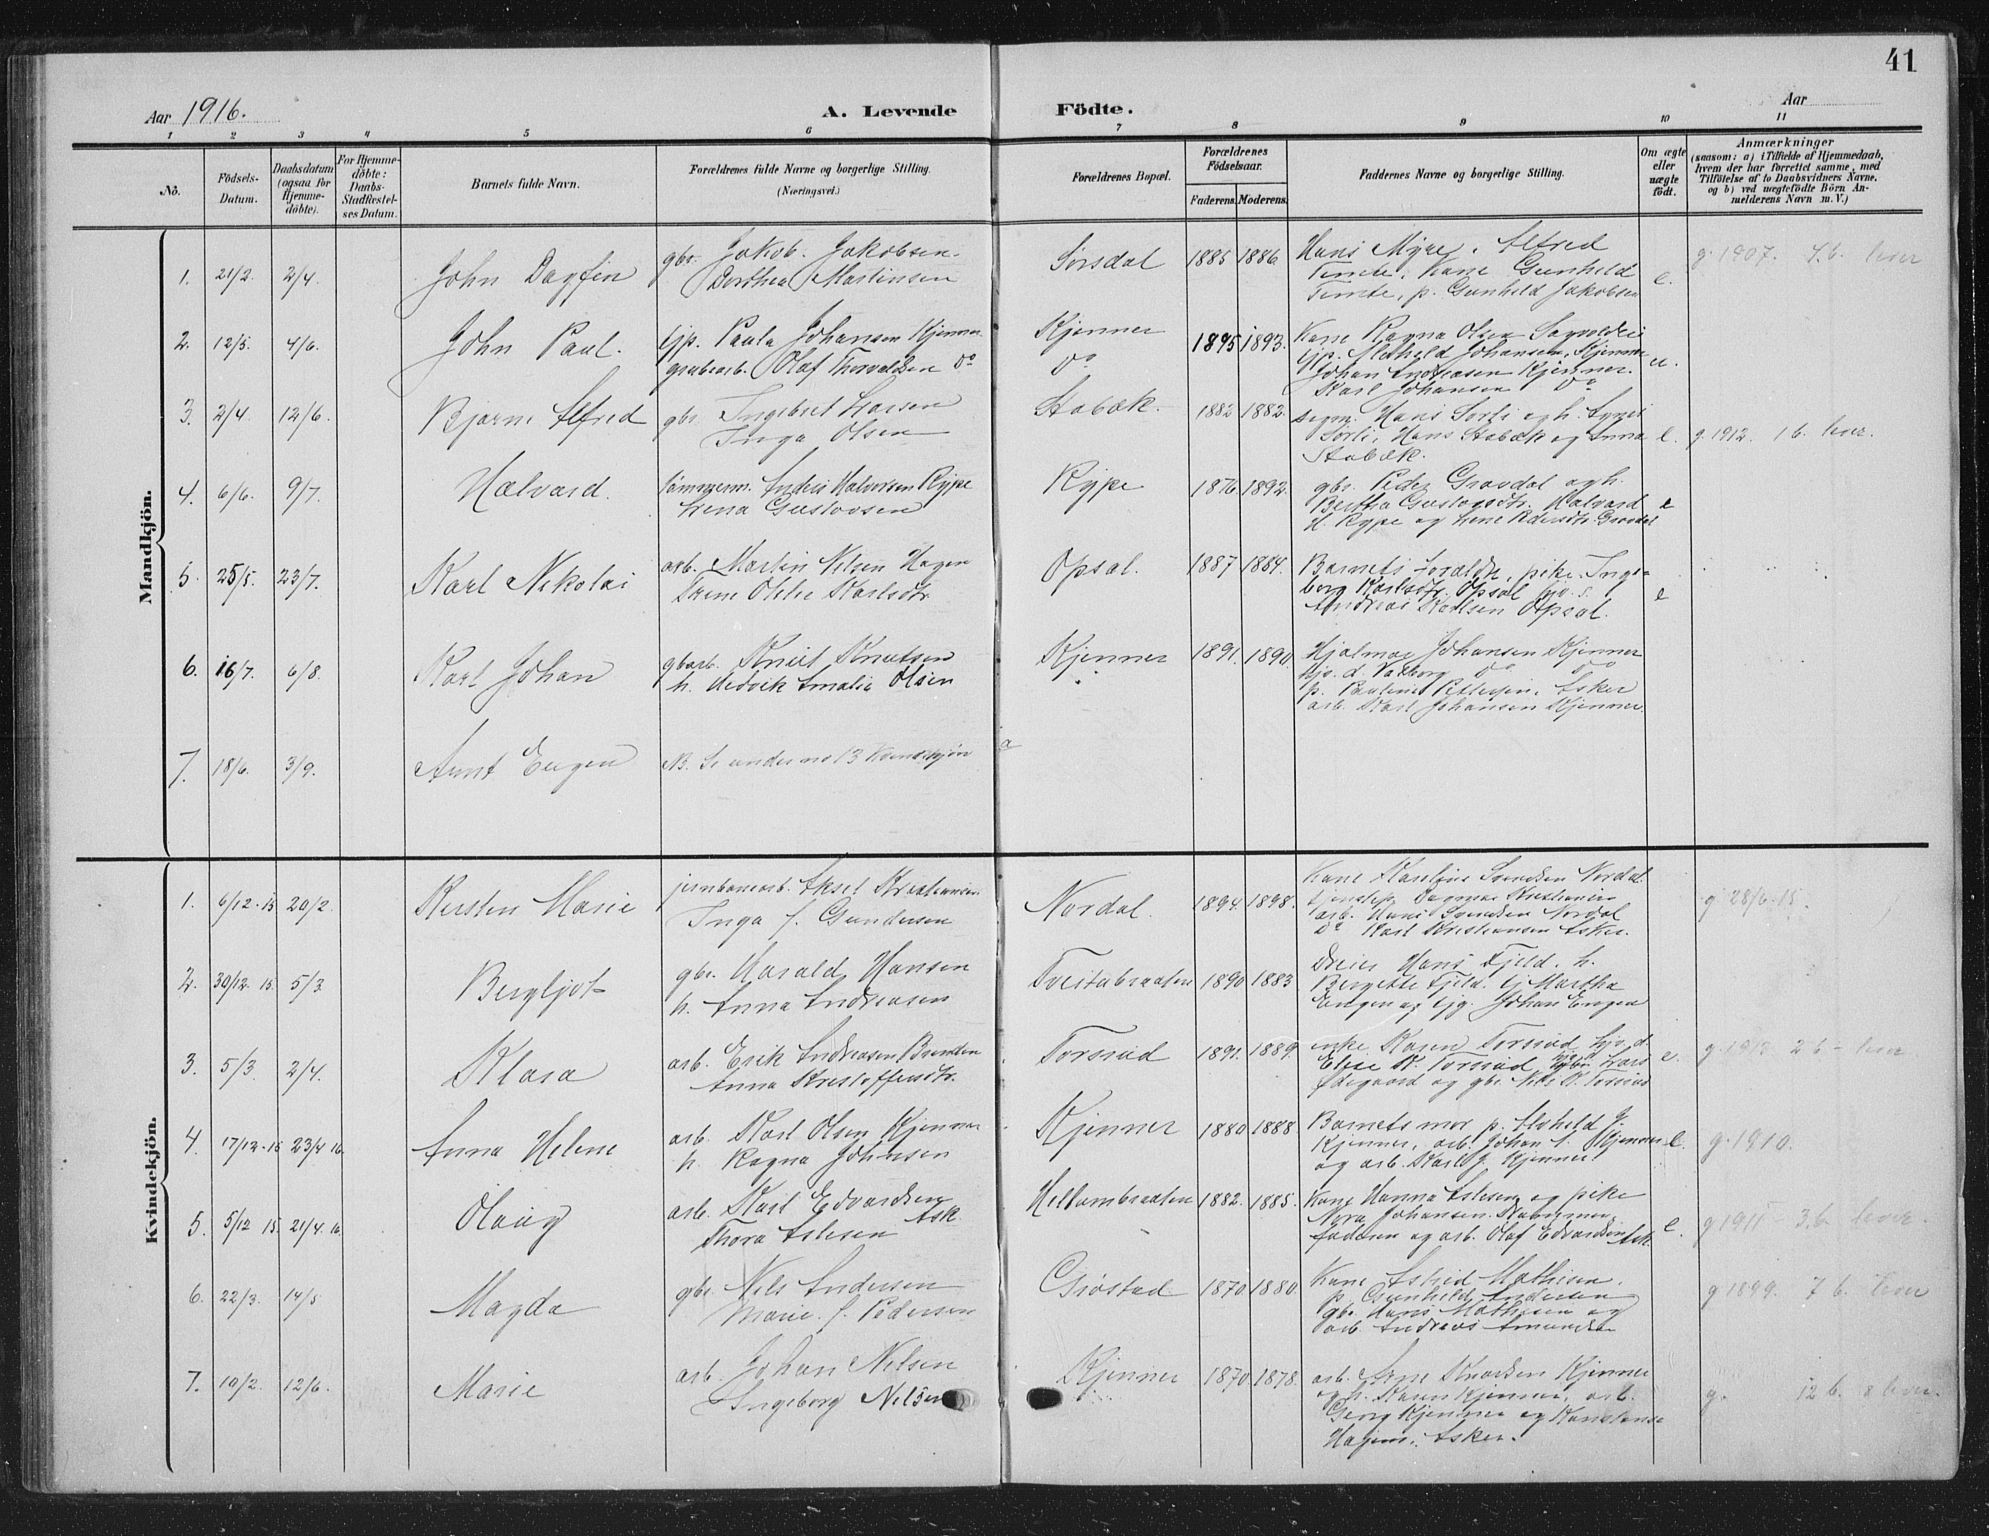 41
Aar 1916.
A. Levende Födte.
Aar
1 2 3 4 5 6 7 8 9 10 11
No.
Födsels-Datum.
Daabsdatum (ogsaa for Hjemme-döbte).
For Hjemme-döbte: Daabs-Stadfæstel-ses Datum.
Barnets fulde Navn.
Forældrenes fulde Navne og borgerlige Stilling.
(Næringsvei.)
Forældrenes Bopæl.
Forældrenes Födselsaar.
Faderens. Moderens.
Faddernes Navne og borgerlige Stilling.
Om ægte eller uægte födt.
Anmærkninger
(saasom: a) i Tilfælde af Hjemmedaab,
hvem der har forrettet samme, med
Tilföielse af to Daabsvidners Navne.
og b) ved uægtefödte Börn An-
melderens Navn m. V.)
Mandkjön.
1. 21/2. 2/4. John Dagfin gbr. Jakob Jakobsen Sørsdal 1885 1886 Hans Myre, Alfred g. 1907. 4 b. lever
Dorthea Martinsen Temte, kone Gunhild e.
Temte, p. Gunhild Jakobsen
2. 12/5. 4/6. John Paul. tjp. Paula Johansen Kjenner Kjenner 1895 1893. Kone Ragna Olsen
grubearb. Olaf Thorvaldsen do do tjp. Johansen, Kjenner u.
Johan Andreasen Kjenner.
Karl Johansen do
3. 2/4. 12/6. Bjarne Alfred gbr. Ingebret Larsen Stabæk. 1882 1882. Hans Sørli og h.
Inga Olsen Sørli, Hans Stabæk og Anna e. g. 1912. 1 b. lever.
Stabæk.
4. 6/6. 9/7. Halvard. tømmerm. Anders Halvorsen Rype Rype 1876 1892. gbr. Peder Gravdal og h.
Lena Gustavsen Bertha Gustavsdtr. Halvard e
H. Rype og Lene Pedersdtr. Gravdal
5. 25/5. 23/7. Karl Nikolai arb. Martin Nilsen Hagen Opsal. 1887 1884. Barnets forældre, pike Inge-
Karlsdtr. borg Karlsdtr. Opsal e
Andreas Karlsen Opsal.
6. 16/7. 6/8. Karl Johan gbarb. Knut Knutsen Kjenner 1891. 1890. Hjalmar Johansen Kjenner
h. Hedvik Amalie Olsen do do
p. Pauline Pettersen, Asker
arb. Karl Johansen Kjenner.
7. 18/6. 3/9. Arnt Eugen NB. Se under no 13 Kvindekjøn
Kvindekjön.
1. 6/12. 15 20/2. Kersten Marie jernbanearb. Aksel Kristiansen Nordal. 1894. 1898. Kone Karoline Svendsen Nordal g. 28/6. 15.
Inga f. Gundersen Dagmar Kristiansen
arb. Hans Svendsen Nordal
do Karl Kristiansen Asker.
2. 30/12. 15. 5/3 Bergljot gbr. Harald Hansen Tveitabraaten 1890 1883 Hans Fjeld. h.
h. Anna Andreasen Bergette Fjeld. Martha
Engen og Johan Engen
3. 5/3. 2/4. Klara arb. Erik Andreasen Braaten Torsrud 1891. 1889. enke Karen Torsrud e. g. 1913 2 b - lever
Anna Kristoffersdtr. Elise K. Torsrud Lars
Ødegaard og gbr. Torsrud
4. 17/12-15 23/4 16. Anna Helene arb. Karl Olsen Kjenner Kjenner 1880 1888 Barnets mor p.
h. Ragna Johansen Kjenner, arb. Johan Kjenner e. g. 1910.
og arb. Karl J. Kjenner
5. 5/12 15. 21/4. 16. Olaug arb. Karl Edvardsen Ask. Hellumbraaten 1882. 1885. Kone Hanna Aslesen og pike
Thora Aslesen Nora Johansen. Barnets e. g. 1911 3 b. lever.
faderen og arb. Olaf Edvardsen Ask.
6. 22/3. 14/5 Magda gbr. Nils Andersen Grøstad 1870 1880. Kone Astrid Mathisen. g 1899. 7 b. lever
Marie f. Pedersen p. Gunhild Andersen
gbr. Hans Mathisen og
arb. Andreas Amundsen
7. 10/2. 12/6. Marie arb. Johan Nilsen Kjenner 1870 1878. arb. Arne Knudsen Kjenner
Ingeborg Nilsen og h. Karen Kjenner, arb. g. 12 b. 8 lever.
Georg Kjenner og Konstanse
Hagen, Asker.